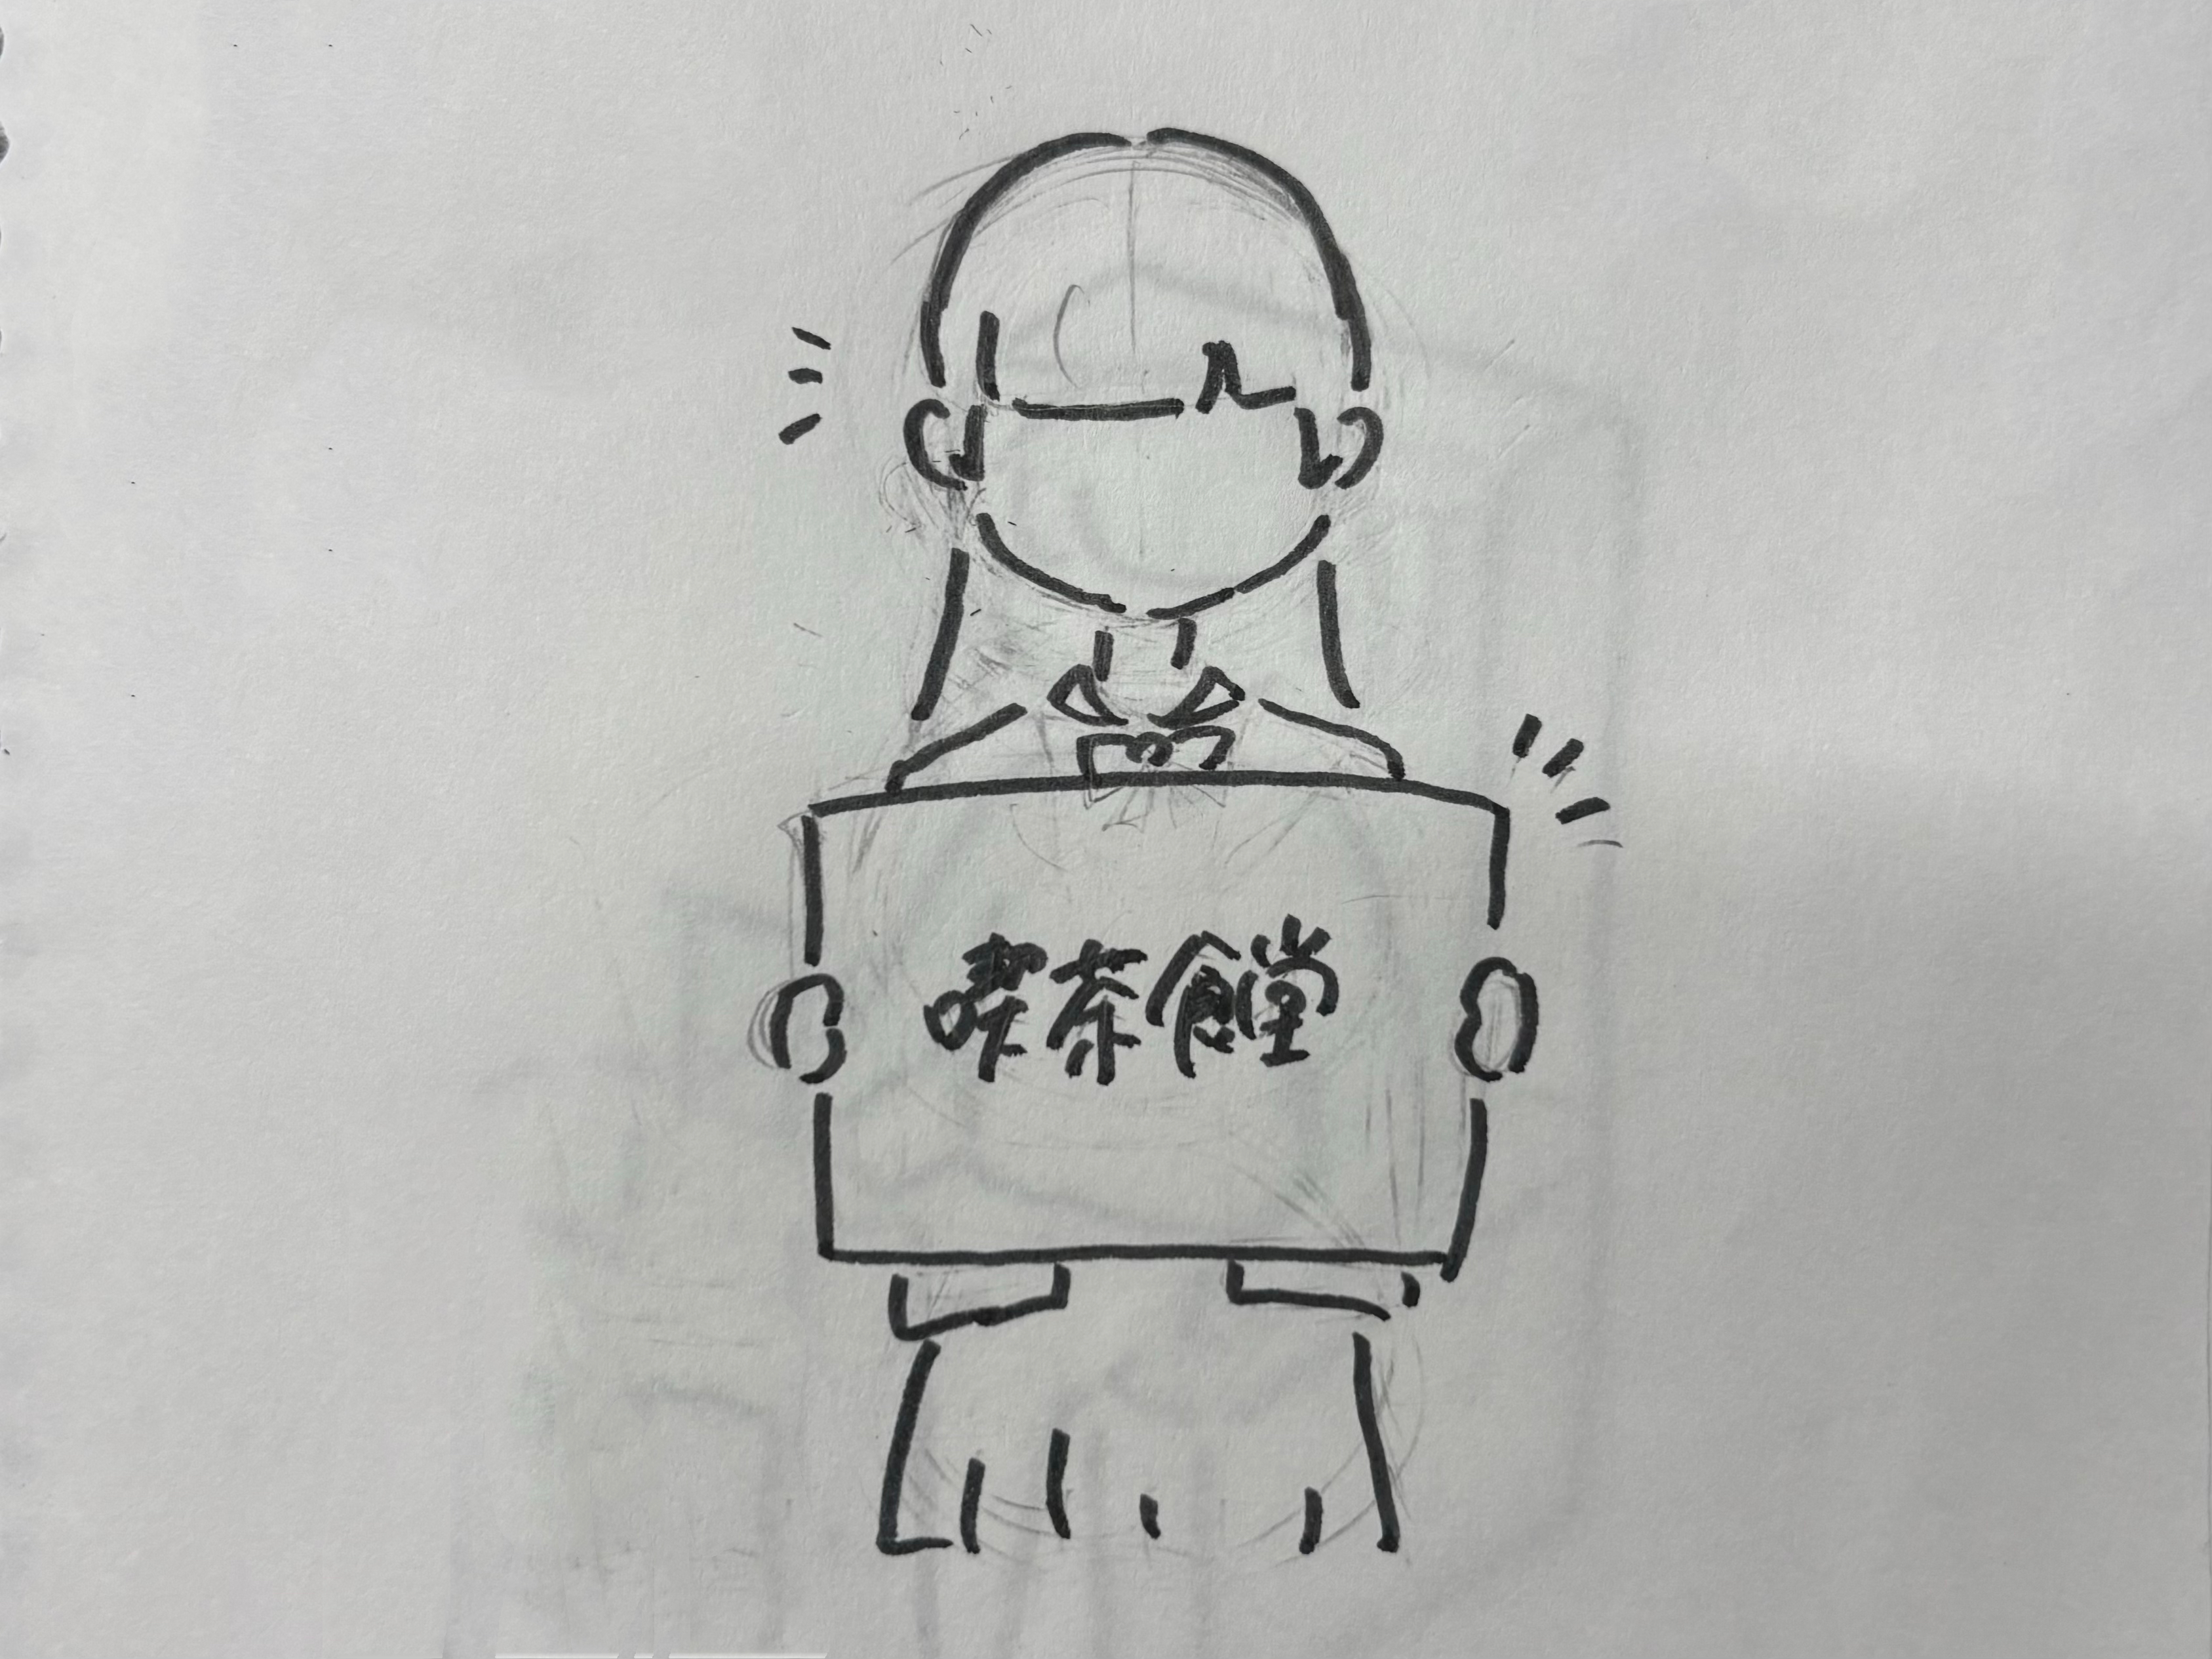 喫茶食堂